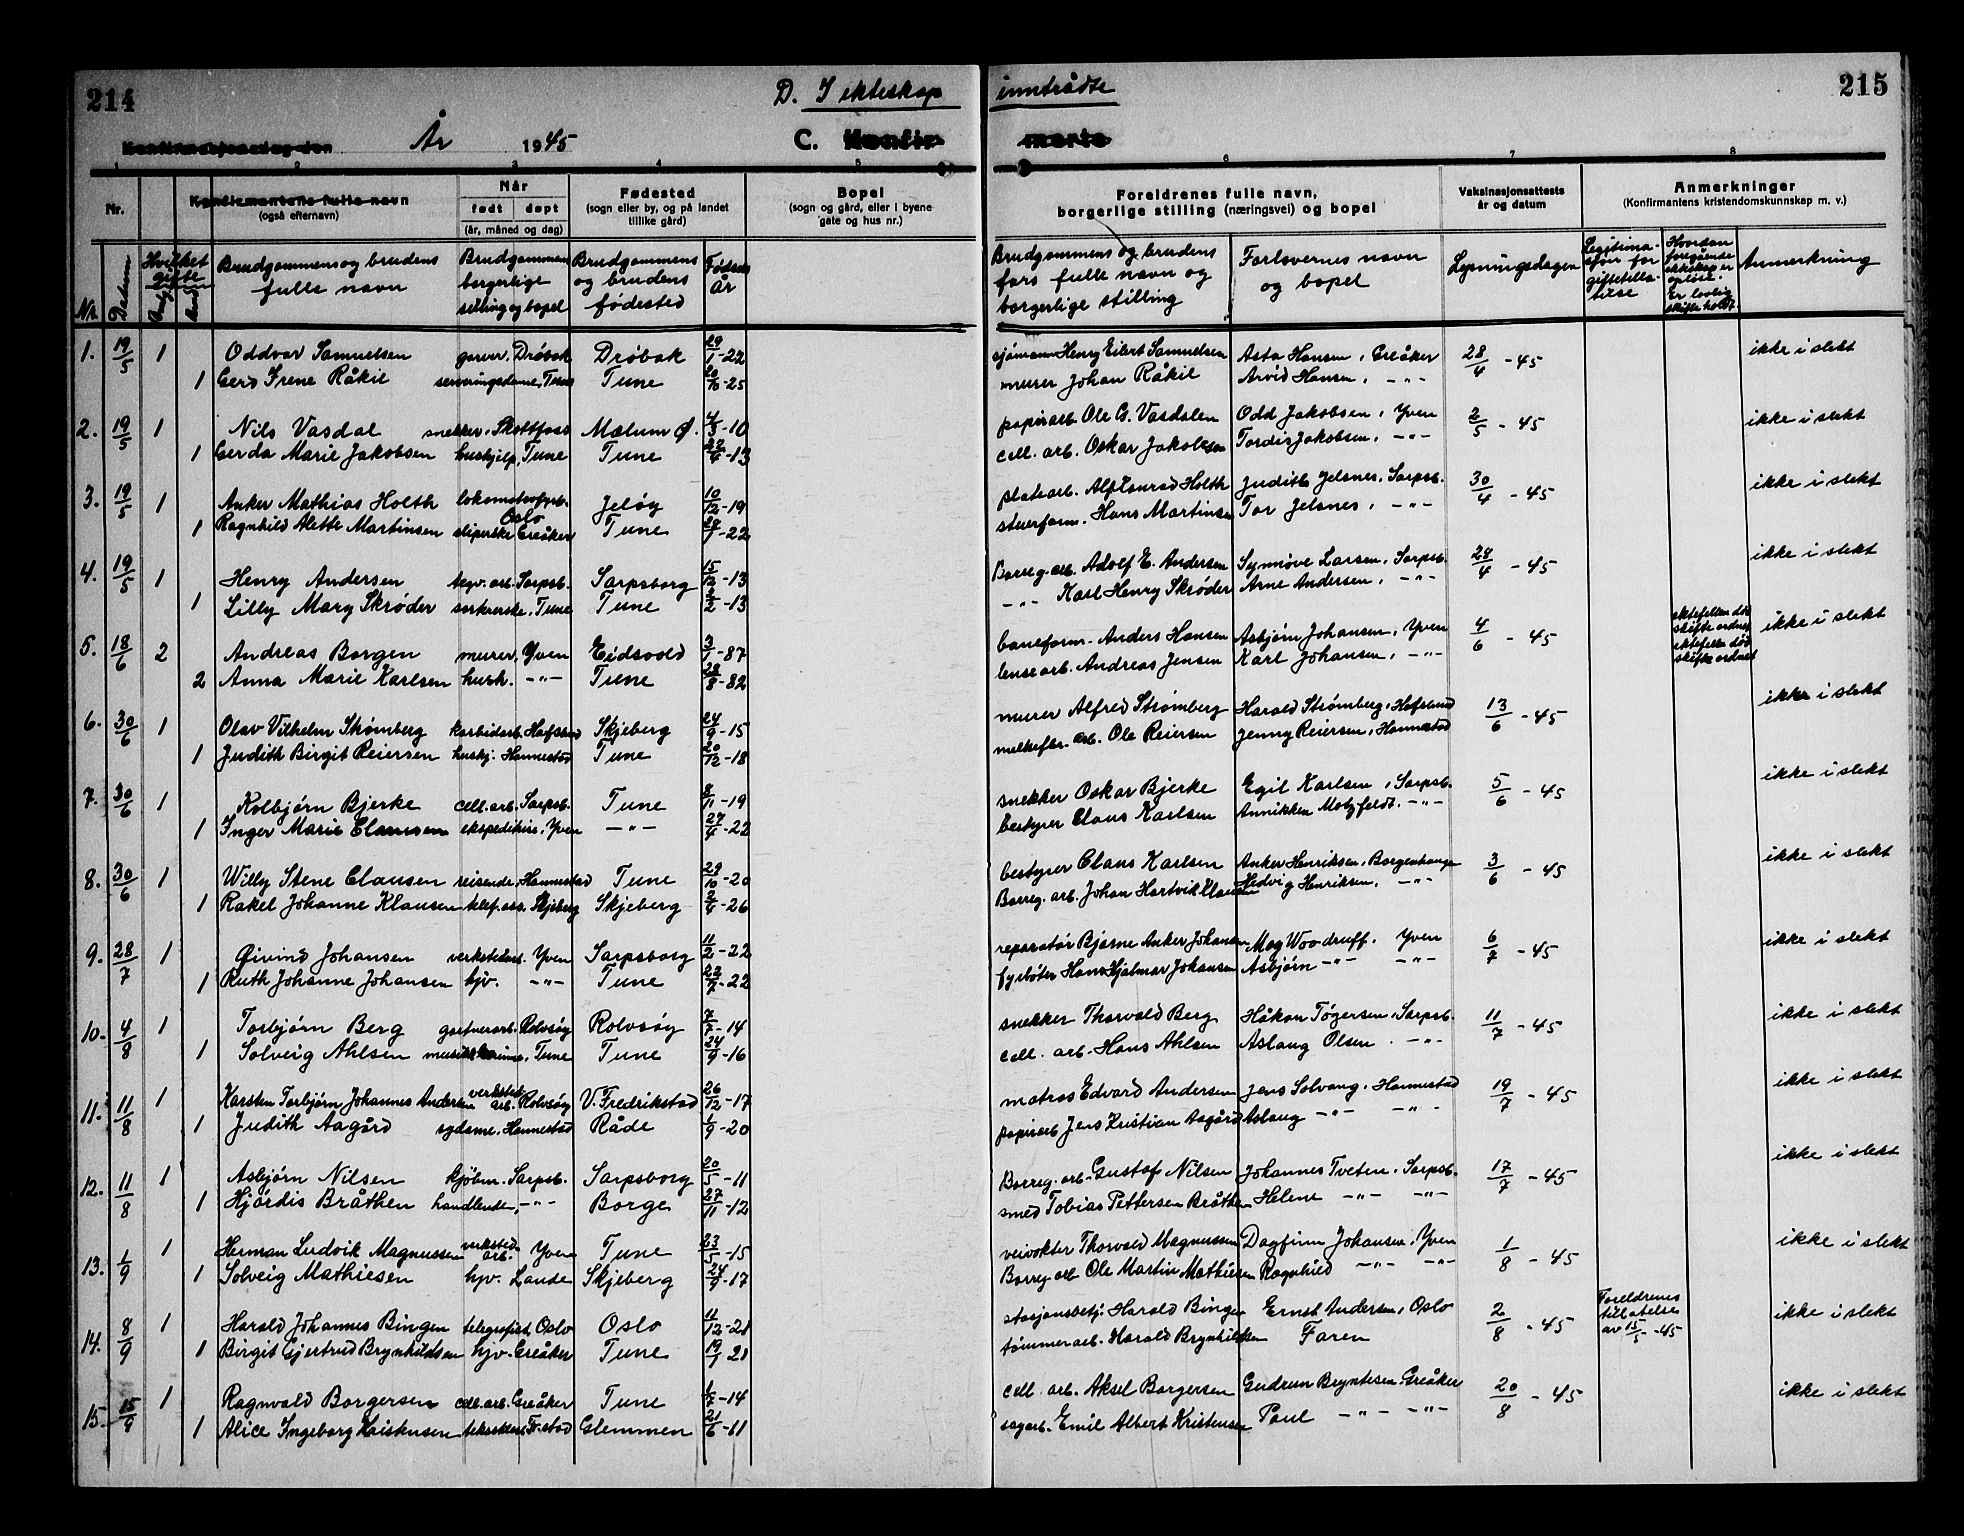 214
D. I ekteskap inntrådte
215
Konfirmasjonsdag den År 1945 C. Konfirmerte
1 2 3 4 5 6 7 8
Nr. Konfirmantens fulle navn (også efternavn) Når født døpt (år, måned og dag) Fødested (sogn eller by, og på landet tillike gård) Bopel (sogn og gård, eller i byene gate og hus nr.) Foreldrenes fulle navn, borgerlige stilling (næringsvei) og bopel Vaksinasjonsattests år og datum Anmerkninger (Konfirmantens kristendomskunnskap m. v.)
Nr. Datum Hvilket gifte Brudgommens og brudens fulle navn Brudgommens borgerlige stilling og bopel Brudgommens og brudens fødested Fødselsår Brudgommens og brudens fars fulle navn og borgerlige stilling Forlovernes navn og bopel Lysningsdagen Legitimasjon for giftetillatelse Hvordan foregående ekteskap er opløst. Er lovlig skifte holdt Anmerkning
1. 19/5 1 Oddvar Samuelsen garver, Drøbak Drøbak 29/1-22 sjømann Henry Eilert Samuelsen Asta Hansen, Greåker 28/4-45 ikke i slekt
1 Gerd Irene Råkil serveringsdame, Tune Tune 20/10-25 murer Johan Råkil Arvid Hansen, -"-
2. 19/5 1 Nils Vasdal snekker, Skotfoss Mælum Ø. 4/3-10 papirarb. Ole G. Vasdalen Odd Jakobsen, Yven 2/5-45 ikke i slekt
1 Gerda Marie Jakobsen hushjelp, Tune Tune 22/4-13 cell. arb. Oskar Jakobsen Tordis Jakobsen, -"-
3. 19/5 1 Anker Mathias Holth lokomotivfyrb. Oslo Jeløy 10/12-19 platearb. Alf Konrad Holth Judith Jelsnes, Sarpsb. 30/4-45 ikke i slekt
1 Ragnhild Alette Martinsen sliperske Greåker Tune 29/7-22 stuerform. Hans Martinsen Tor Jelsnes, -"-
4. 19/5 1 Henry Andersen tegv. arb. Sarpsb. Sarpsborg 15/12-13 Borreg. arb. Adolf E. Andersen Synnøve Larsen, Sarpsb. 28/4-45 ikke i slekt
1 Lilly Mary Skrøder Tune Tune 2/2-13 -"- Karl Henry Skrøder Arne Andersen, -"-
5. 18/6 2 Andreas Borgen murer, Yven Eidsvold 3/1-87 baneform. Anders Hansen Asbjørn Johansen, Yven 4/6-45 ektefellen død skifte ordnet ikke i slekt
2 Anna Marie Karlsen hush. -"- Tune 28/8-82 lensearb. Andreas Jensen Karl Johansen, -"- ektefellen død skifte ordnet
6. 30/6 1 Olav Vilhelm Strømberg karbidarb. Hafslund Skjeberg 24/9-15 murer Alfred Strømberg Harald Strømberg, Hafslund 13/6-45 ikke i slekt
1 Judith Birgit Reiersen hushj. Hannestad Tune 20/12-18 melkefor. arb. Ole Reiersen Jenny Reiersen, Hannestad
7. 30/6 1 Kolbjørn Bjerke cell. arb. Sarpsb. Tune 8/11-19 snekker Oskar Bjerke Egil Karlsen, Sarpsb. 5/6-45 ikke i slekt
1 Inger Marie Clausen ekspeditrise, Yven -"- 27/4-22 bestyrer Claus Karlsen Annikken Motzfeldt, -"-
8. 30/6 1 Willy Stene Clausen reisende, Hannestad Tune 29/10-20 bestyrer Claus Karlsen Anker Henriksen, Borgenhaugen 3/6-45 ikke i slekt
1 Rakel Johanne Klausen telef. ass. Skjeberg Skjeberg 2/4-26 Borreg. arb. Johan Hartvik Klausen Hedvig Henriksen, -"-
9. 28/7 1 Øivind Johansen verkstedarb. Yven Sarpsborg 11/2-22 reparatør Bjarne Anker Johansen May Woodruff. Yven 6/7-45 ikke i slekt
1 Ruth Johanne Johansen hjv. -"- Tune 22/7-22 fyrbøter Hans Hjalmar Johansen Asbjørn -"- -"-
10. 4/8 1 Torbjørn Berg gartnerarb. Rolvsøy Rolvsøy 7/7-14 snekker Thorvald Berg Håkon Tøgersen, Sarpsb. 11/7-45 ikke i slekt
1 Solveig Ahlsen Tune Tune 24/9-16 cell. arb. Hans Ahlsen Aslaug Olsen. -"-
11. 11/8 1 Karsten Torbjørn Johannes Andersen verksted arb. Rolvsøy V. Fredrikstad 26/12-17 matros Edvard Andersen Jens Solvang, Hannestad 19/7-45 ikke i slekt
1 Judith Aagård sydame, Hannestad Råde 1/9-20 papirarb. Jens Kristian Aagård Aslaug -"- -"-
12. 11/8 1 Asbjørn Nilsen kjøbm. Sarpsb. Sarpsborg 20/5-11 Borreg. arb. Gustaf Nilsen Johannes Tveten, Sarpsb. 17/7-45 ikke i slekt
1 Hjørdis Bråthen handlende, -"- Borge 27/11-12 smed Tobias Pettersen Bråthen Helene -"- -"-
13. 1/9 1 Herman Ludvik Magnussen verksted arb. Yven Tune 23/5-15 veivokter Thorvald Magnussen Dagfinn Johansen, Yven 1/8-45 ikke i slekt
1 Solveig Mathiesen hjv. Lande Skjeberg 24/9-17 Borreg. arb Ole Martin Mathiesen Ragnhild -"- -"-
14. 8/9 1 Harald Johannes Bingen telegrafist Oslo Oslo 11/12-21 stasjonsbetj. Harald Bingen Ernst Andersen, Oslo 2/8-45 Foreldrenes tillatelse av 15/5-45 ikke i slekt
1 Birgit Gjertrud Brynhildsen hjv. Greåker Tune 19/1 21 tømmerarb. Harald Brynhildsen Faren
15. 15/9 1 Ragnvald Borgersen cell. arb. Greåker Tune 1/7-14 cell. arb. Aksel Borgersen Gudrun Bryntesen Greåker 20/8-45 ikke i slekt
1 Alice Ingeborg Kristensen Fr.stad Glemmen 21/6-11 sagarb. Emil Albert Kristensen Paul -"- -"-